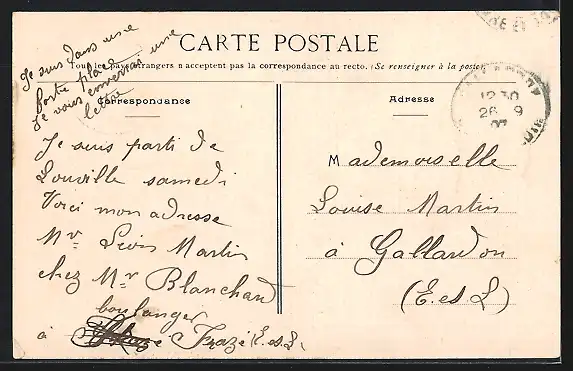 CARTE POSTALE
Tous les pays étrangers n'acceptent pas la correspondance au recto. (Se renseigner à la poste)
Correspondance
Adresse
Je suis dans une
forte place
Je vous enverrai une
lettre
Je suis parti de
Louville samedi
Voici mon adresse
Mr Léon Martin
chez Mr Blanchard
boulanger
à Frazé E.et.L.
12 30
26 9
07
Mademoiselle
Louise Martin
à Gallardon
(E. et L)